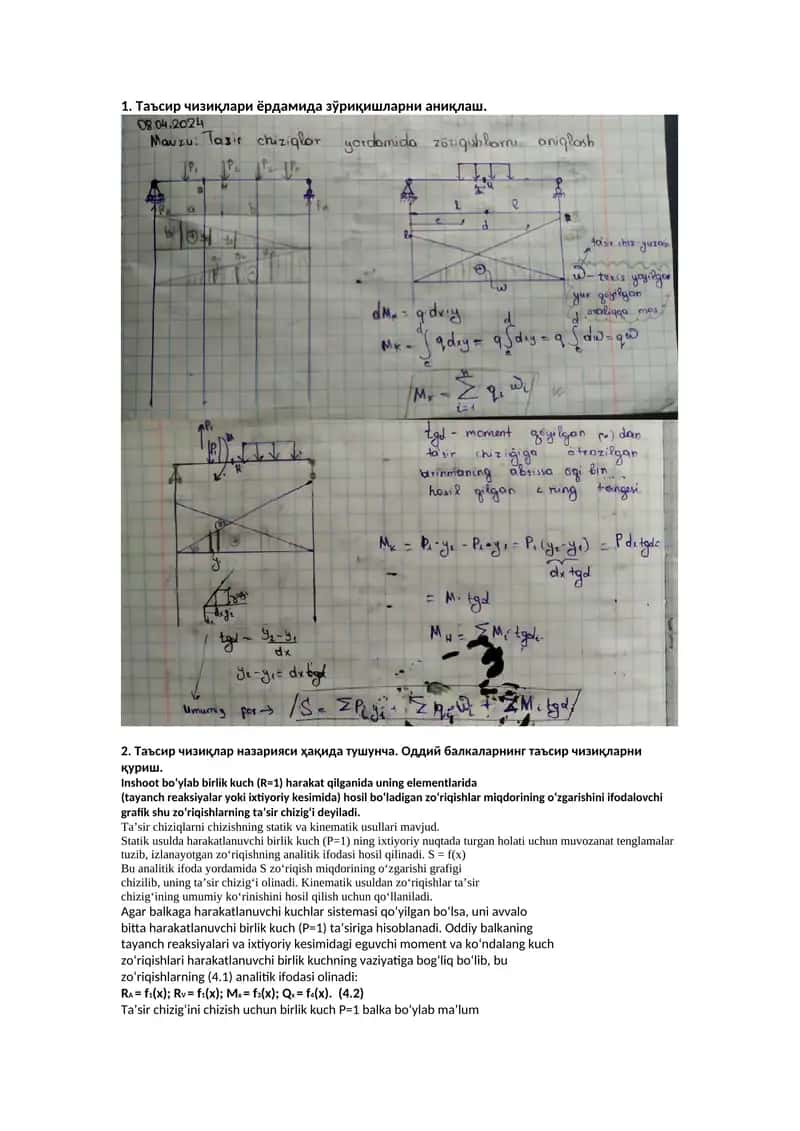 1. Таъсир чизиқлари ёрдамида зўриқишларни аниқлаш.
08.04.2024
Mavzu: Tasir chiziqlar yordamida zoriqishlarni aniqlash
P₁ P₂
a b
l l
c d
ω
ta'sir chiz yuzasi
ω - tekis yoyilgan
yuk qo'yilgan
oraliqqa mos
dMₖ = q·dx·y
Mₖ = ∫ q dx y = q ∫ dx y = q ∫ dω = qω
Mₖ = Σ qᵢ ωᵢ
i=1
tgα - moment qo'yilgan
ta'sir chizig'iga o'tkazilgan
urinmaning abssissa o'qi bn
hosil qilgan
Mₖ = P₁·y₂ - P₁·y₁ = P₁(y₂-y₁) = P dx tgα
dx tgα
= M·tgα
y
tgα = y₂-y₁ / dx
y₂-y₁ = dx tgα
Umumiy
S = ΣPᵢyᵢ + Σqᵢωᵢ + ΣMᵢtgαᵢ
2. Таъсир чизиқлар назарияси ҳақида тушунча. Оддий балкаларнинг таъсир чизиқларни
қуриш.
Inshoot bo‘ylab birlik kuch (R=1) harakat qilganida uning elementlarida
(tayanch reaksiyalar yoki ixtiyoriy kesimida) hosil bo‘ladigan zo‘riqishlar miqdorining o‘zgarishini ifodalovchi
grafik shu zo‘riqishlarning ta’sir chizig‘i deyiladi.
Ta’sir chiziqlarni chizishning statik va kinematik usullari mavjud.
Statik usulda harakatlanuvchi birlik kuch (P=1) ning ixtiyoriy nuqtada turgan holati uchun muvozanat tenglamalar
tuzib, izlanayotgan zo‘riqishning analitik ifodasi hosil qilinadi. S = f(x)
Bu analitik ifoda yordamida S zo‘riqish miqdorining o‘zgarishi grafigi
chizilib, uning ta’sir chizig‘i olinadi. Kinematik usuldan zo‘riqishlar ta’sir
chizig‘ining umumiy ko‘rinishini hosil qilish uchun qo‘llaniladi.
Agar balkaga harakatlanuvchi kuchlar sistemasi qo‘yilgan bo‘lsa, uni avvalo
bitta harakatlanuvchi birlik kuch (P=1) ta’siriga hisoblanadi. Oddiy balkaning
tayanch reaksiyalari va ixtiyoriy kesimidagi eguvchi moment va ko‘ndalang kuch
zo‘riqishlari harakatlanuvchi birlik kuchning vaziyatiga bog‘liq bo‘lib, bu
zo‘riqishlarning (4.1) analitik ifodasi olinadi:
Rᴀ = f₁(x); Rᵥ = f₁(x); Mₓ = f₃(x); Qₓ = f₄(x). (4.2)
Ta’sir chizig‘ini chizish uchun birlik kuch P=1 balka bo‘ylab ma’lum